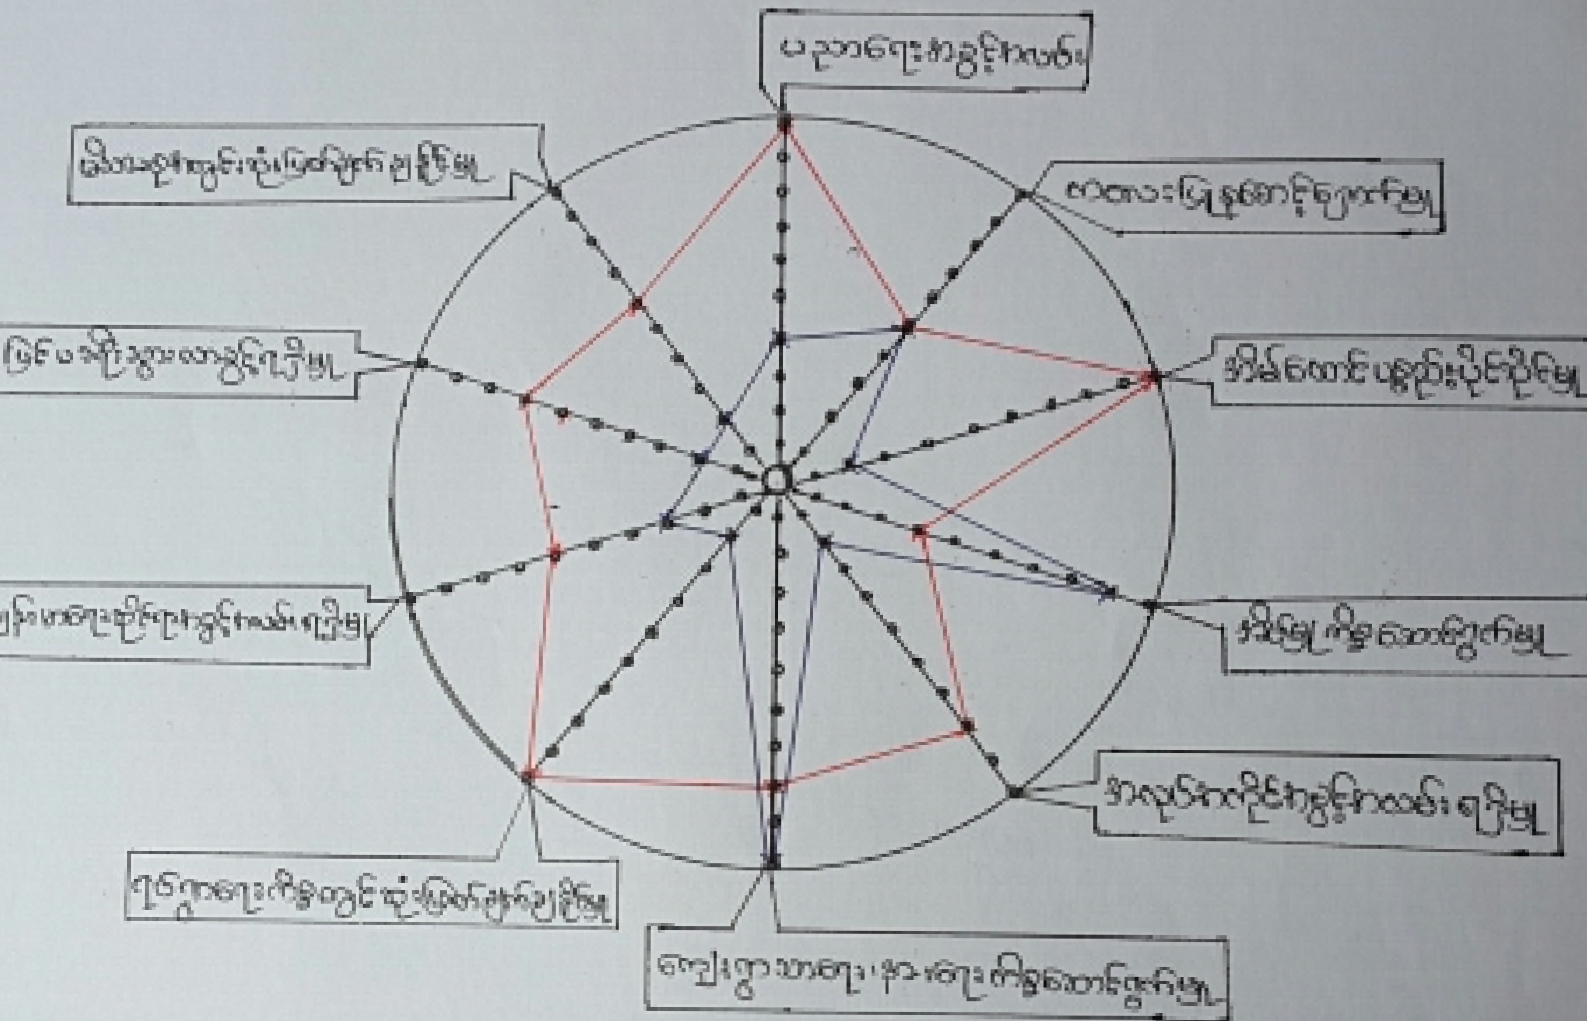 ပညာရေးအခွင့်အလမ်း
ကလေးပြုစုစောင့်ရှောက်မှု
အိမ်ထောင်ပစ္စည်းပိုင်ဆိုင်မှု
အိမ်မှုကိစ္စဆောင်ရွက်မှု
အလုပ်အကိုင်အခွင့်အလမ်းရရှိမှု
ကျေးရွာသာရေး၊နာရေးကိစ္စဆောင်ရွက်မှု
ရပ်ရွာရေးကိစ္စတွင်ဆုံးဖြတ်ချက်ချနိုင်မှု
ကျန်းမာရေးဆိုင်ရာအခွင့်အလမ်းရရှိမှု
ပြင်ပသို့သွားလာခွင့်ရရှိမှု
မိသားစုအတွင်းဆုံးဖြတ်ချက်ချနိုင်မှု